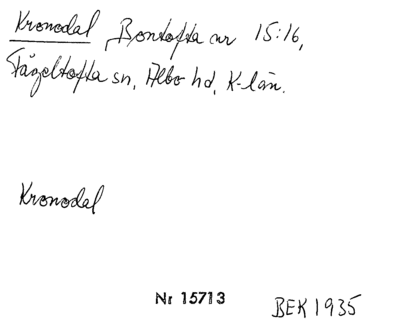 Kronodal, Bontofta nr 15:16,
Fågeltofta sn, Albo hd, K-län.
Kronodal
Nr 15713
BEK 1935